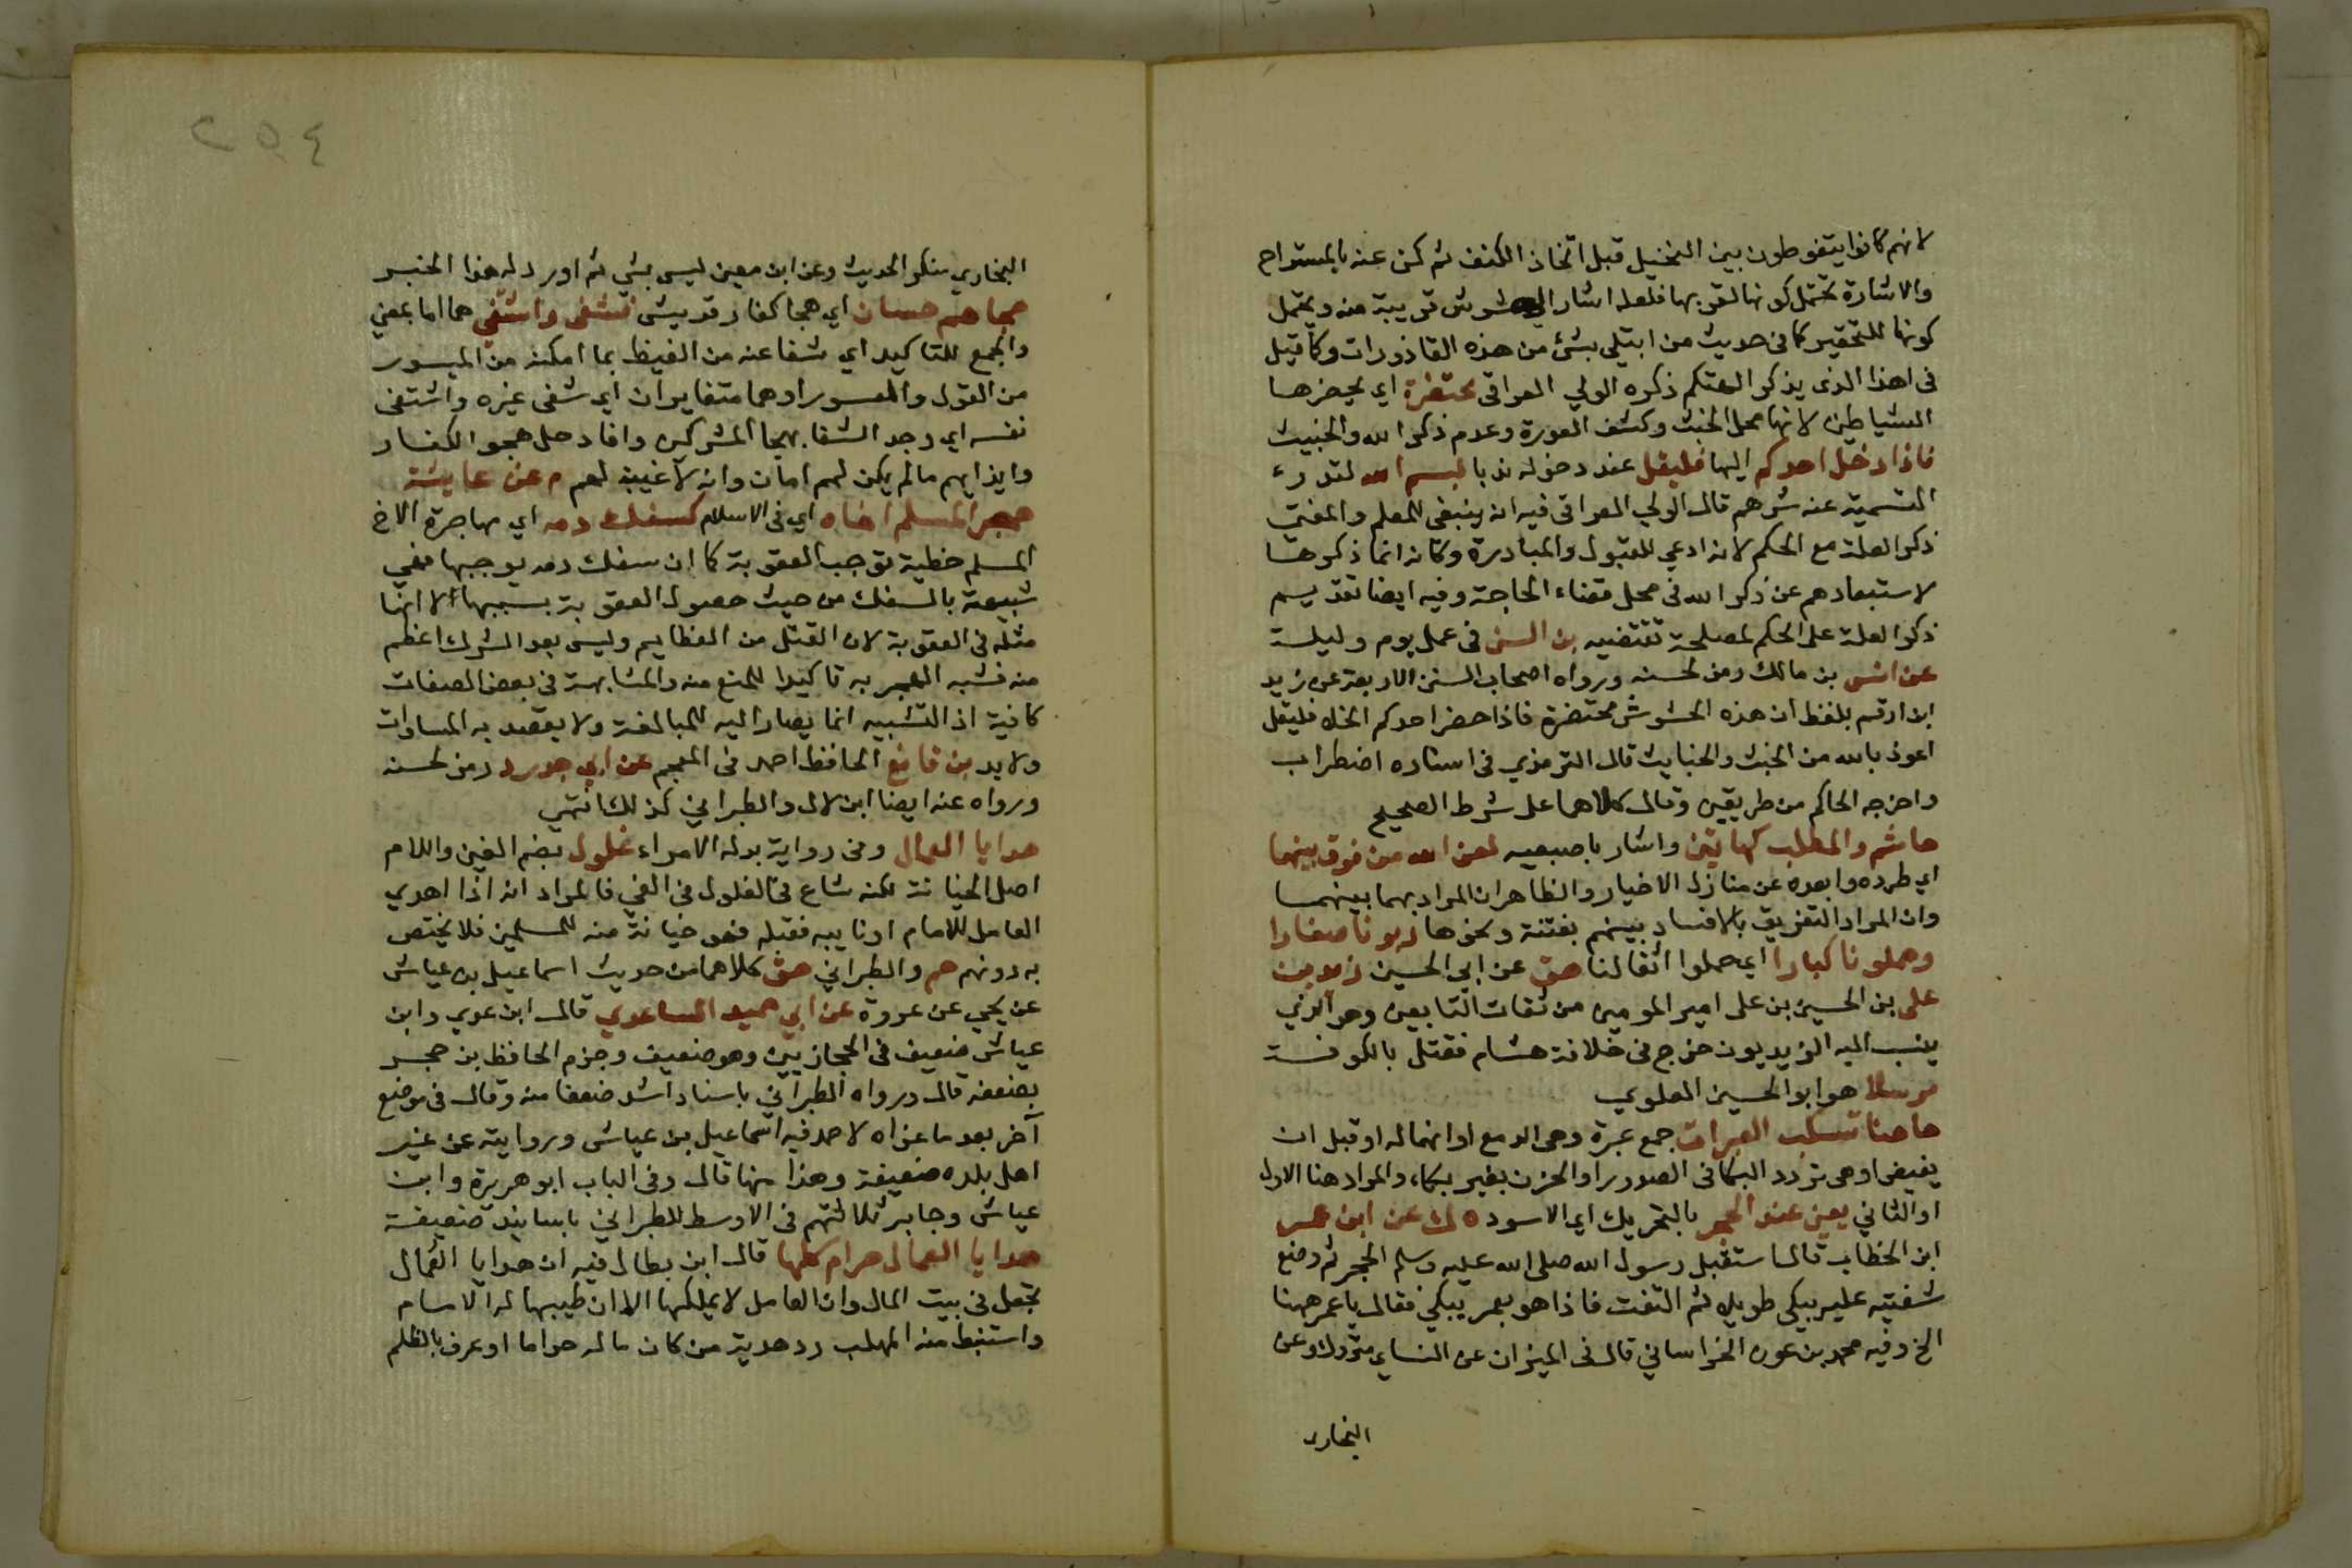 لانهم كانوا يتغوطون بين النخيل قبل اتخاذ الكنف ثم كن عنه بالمستراح
والاشارة تحتمل كونها لقربها فلعله اشار الى حشوش قريبة منه ويحتمل
كونها للتحقير كما في حديث من ابتلي بشئ من هذه القاذورات وكما قيل
في اهذا الذي يذكر الهتكم ذكره الولي العراقي محتضرة اي يحضرها
الشياطين لانها محل الخبث وكشف العورة وعدم ذكر الله والخبيث
فاذا دخل احدكم اليها فليقل عند دخوله ندبا بسم الله لتدرء
التسمية عنه شرهم قال الولي العراقي فيه انه ينبغي للمعلم والمفتي
ذكر العلة مع الحكم لانه ادعي للقبول والمبادرة وكانه انما ذكرها
لاستبعادهم عن ذكر الله في محل قضاء الحاجة وفيه ايضا تقديم
ذكر العلة على الحكم لمصلحة تقتضيه بن السني في عمل يوم وليلة
عن انس بن مالك رمز لحسنه ورواه اصحاب السنن الاربعة عن زيد
ابن ارقم بلفظ ان هذه الحشوش محتضرة فاذا حضر احدكم الخلا فليقل
اعوذ بالله من الخبث والخبايث قال الترمذي في اسناده اضطراب
واخرجه الحاكم من طريقين وقال كلاهما على شرط الصحيح
هاشم والمطلب كهاتين واشار باصبعيه لعن الله من فرق بينهما
اي طرده وابعده عن منازل الاخيار والظاهر ان المراد بهما بينهما
وان المراد التفريق بالافساد بينهم بفتنة ونحوها ربونا صغارا
وحملونا كبارا اي حملوا اثقالنا هق عن ابي الحسين زيد بن
علي بن الحسين بن علي امير المومنين من ثقات التابعين وهو الذي
ينسب اليه الزيديون خرج في خلافة هشام فقتل بالكوفة
مرسلا هو ابو الحسين العلوي
هاهنا تسكب العبرات جمع عبرة وهى الدمع او انهماله او قبل ان
يفيض او هى تردد البكا في الصدور او الحزن بغير بكاء والمراد هنا الاول
او الثاني يعني عند الحجر بالتحريك اي الاسود ه ك عن ابن عمر
ابن الخطاب قال استقبل رسول الله صلى الله عليه وسلم الحجر ثم وضع
شفتيه عليه يبكي طويلا ثم التفت فاذا هو بعمر يبكي فقال يا عمر ههنا
الخ وفيه محمد بن عون الخراساني قال في الميزان عن النساي متروك وعن
البخاري
٢٥٤
البخاري منكر الحديث وعن ابن معين ليس بشي ثم اورد له هذا الخبر
هجاهم حسان اي هجا كفار قريش فشفى واشتفى هما اما بمعنى
والجمع للتاكيد اي شفا عنه من الغيظ بما امكنه من الميسور
من القول والمعسور او هما متغايران اي شفى غيره واشتفى
نفسه اي وجد الشفا بهجا المشركين وافاد حل هجو الكفار
وايذايهم ما لم يكن لهم امان وانه لا غيبة لهم م عن عايشة
هجر المسلم اخاه اي في الاسلام كسفك دمه اي مهاجرة الاخ
المسلم خطية توجب العقوبة كما ان سفك دمه يوجبها فهي
شبيهة بالسفك من حيث حصول العقوبة بسببها لا انها
مثله في العقوبة لان القتل من العظايم وليس بعد الشرك اعظم
منه فشبه الهجر به تاكيدا للمنع منه والمشابهة في بعض الصفات
كافية اذ التشبيه انما يصار اليه للمبالغة ولا يقصد به المساوات
ولابد بن قانع الحافظ احمد في المعجم عن ابي حدرد رمز لحسنه
ورواه عنه ايضا ابن لال والطبراني كذلك انتهى
هدايا العمال وفي رواية بدله الامراء غلول بضم الغين واللام
اصل الخيانة لكنه شاع في الغلول في الفي فالمراد انه اذا اهدي
العامل للامام او نايبه فقبله فهو خيانة منه للمسلمين فلا يختص
به دونهم حم والطبراني هق كلاهما من حديث اسماعيل بن عياش
عن يحي عن عروة عن ابي حميد الساعدي قال ابن عدي وابن
عياش ضعيف في الحجازيين وهو ضعيف وجزم الحافظ بن حجر
بضعفه قال ورواه الطبراني باسناد اشد ضعفا منه وقال في موضع
آخر بعد ما عزاه لاحمد فيه اسماعيل بن عياش وروايته عن غير
اهل بلده ضعيفة وهذا منها قال وفي الباب ابو هريرة وابن
عباس وجابر ثلاثتهم في الاوسط للطبراني باسانيد ضعيفة
هدايا العمال حرام كلها قال ابن بطال فيه ان هدايا العمال
تجعل في بيت المال وان العامل لا يملكها الا ان طيبها له الامام
واستنبط منه المهلب رد هدية من كان ماله حراما او عرف بالظلم